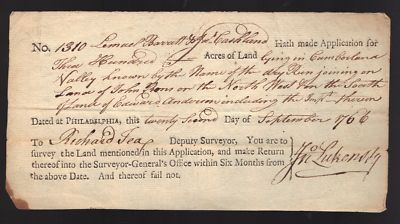 No. 1310 Lemuel Barratt of Cashland Hath made Application for
Three Hundred Acres of Land lying in Cumberland
Valley known by the Name of the dry Run joining on
Land of John on the North West on the South
of Land of Edward Anderson including the therein
Dated at PHILADELPHIA, this twenty Second Day of September 1766
To Richard Tea Deputy Surveyor, You are to
survey the Land mentioned in this Application, and make Return
thereof into the Surveyor-General's Office within Six Months from
the above Date. And thereof fail not.
Jno. Lukens S.G.